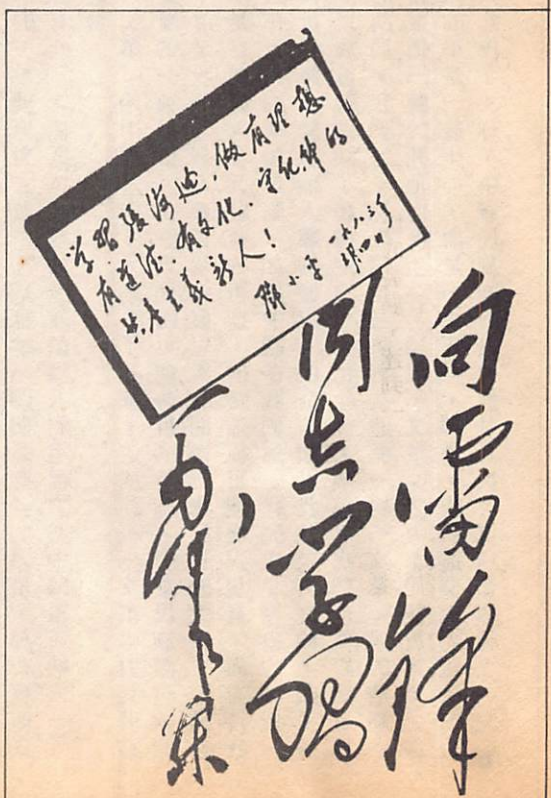 学習張海迪,做有理想
有道德、有文化、守纪律的
共产主义新人!
鄧小平
一九八三年
五月四日
向雷锋
同志学習
毛泽东